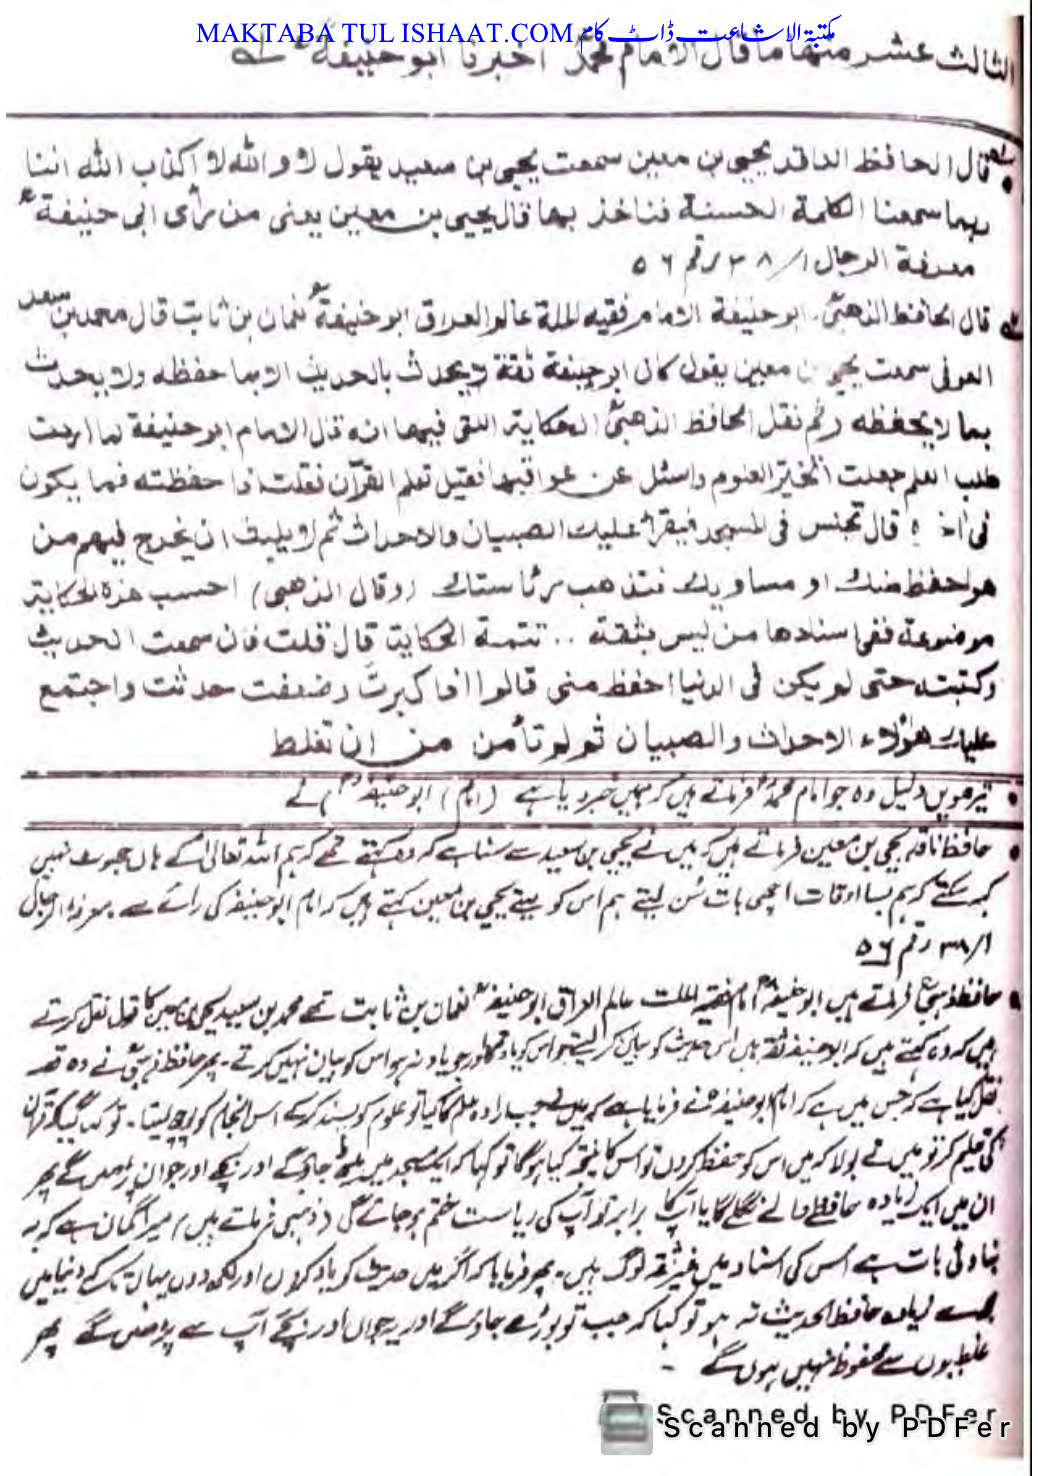 MAKTABA TUL ISHAAT.COM مکتبۃ الاشاعت ڈاٹ کام
الثالث عشر منها ما قال الامام محمدؒ اخبرنا ابو حنیفةؒ
قال الحافظ الناقد یحیی بن معین سمعت یحیی بن سعید یقول لا والله لا اکذب الله اننا
ربما سمعنا الکلمة الحسنة فناخذ بها قال یحیی بن معین یعنی من رأی ابی حنیفة
معرفة الرجال ۱/۳۸ رقم ۵۶
قال الحافظ الذهبیؒ، ابو حنیفة الامام فقیه الملة عالم العراق ابو حنیفةؒ نعمان بن ثابت قال محمد بن سعد
العوفی سمعت یحیی بن معین یقول کان ابو حنیفة ثقة لا یحدث بالحدیث الا بما حفظه ولا یحدث
بما لا یحفظه ثم نقل الحافظ الذهبیؒ الحکایة التی فیها انه قال الامام ابو حنیفة لما اردت
طلب العلم جعلت اتخیر العلوم واسئل عن عواقبها فقیل تعلم القرآن فقلت اذا حفظته فما یکون
فی اخره قال تجلس فی المسجد فیقرأ علیك الصبیان والاحداث ثم لا یلبث ان یخرج فیهم من
هو احفظ منك او مساویك فتذهب رئاستك (وقال الذهبی) احسب هذه الحکایة
موضوعة ففی اسنادها من لیس بثقة .. تتمة الحکایة قال قلت فان سمعت الحدیث
وکتبته حتی لم یکن فی الدنیا احفظ منی قالوا اذا کبرت وضعفت حدثت واجتمع
علیك هؤلاء الاحداث والصبیان ثم لم تأمن من ان تغلط
• تیرھویں دلیل وہ جو امام محمدؒ فرماتے ہیں کہ ہمیں خبر دیا ہے (امام) ابو حنیفہؒ نے
• حافظ ناقد یحیی بن معین فرماتے ہیں کہ میں نے یحیی بن سعید سے سنا ہے کہ وہ کہتے تھے کہ ہم اللہ تعالی کے ہاں جھوٹ نہیں
کہہ سکتے کہ ہم بسا اوقات اچھی بات سُن لیتے ہم اس کو لیتے یحیی بن معین کہتے ہیں کہ امام ابو حنیفہ کی رائے سے معرفۃ الرجال
۱/۳۸ رقم ۵۶
• حافظ ذہبیؒ فرماتے ہیں ابو حنیفہؒ امام فقیہ الملت عالم العراق ابو حنیفہؒ نعمان بن ثابت تھے محمد بن سعید یحیی بن معین کا قول نقل کرتے
ہیں کہ وہ کہتے ہیں کہ ابو حنیفہ ثقہ ہیں اس حدیث کو بیان کر لیتے جو اس کو یاد تھا اور جو یاد نہ ہو اس کو بیان نہیں کرتے۔ پھر حافظ ذہبیؒ نے وہ قصہ
نقل کیا ہے کہ جس میں ہے کہ امام ابو حنیفہؒ نے فرمایا ہے کہ میں نے جب ارادہ علم کا کیا تو علوم کو پسند کر کے اس انجام کو پوچھ لیتا۔ تو کہا گیا کہ قرآن
کی تعلیم کر تو میں نے بولا کہ میں اس کو حفظ کروں تو اس کا نتیجہ کیا ہوگا تو کہا کہ ایک مسجد میں بیٹھ جاؤ گے اور بچے اور جوان پڑھیں گے پھر
ان میں ایک زیادہ حافظے والے نکلے گا یا آپ کا برابر تو آپ کی ریاست ختم ہو جائے گی (ذہبی فرماتے ہیں) میرا گمان ہے کہ یہ
بناوٹی بات ہے اس کی اسناد میں غیر ثقہ لوگ ہیں۔ پھر فرمایا کہ اگر میں حدیث کو یاد کروں اور لکھ دوں یہاں تک کہ دنیا میں
مجھ سے زیادہ حافظ الحدیث نہ ہو تو کہا کہ جب تو بوڑھے جاؤ گے اور یہ جوان اور بچے آپ سے پڑھیں گے پھر
غلطیوں سے محفوظ نہیں ہوں گے ۔
Scanned by PDFer
Scanned by PDFer